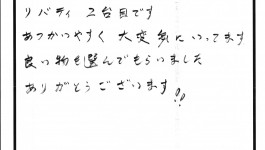 リバティ 2台目です
あつかいやすく 大変気にいってます
良い物を選んでもらいました
ありがとうございます!!